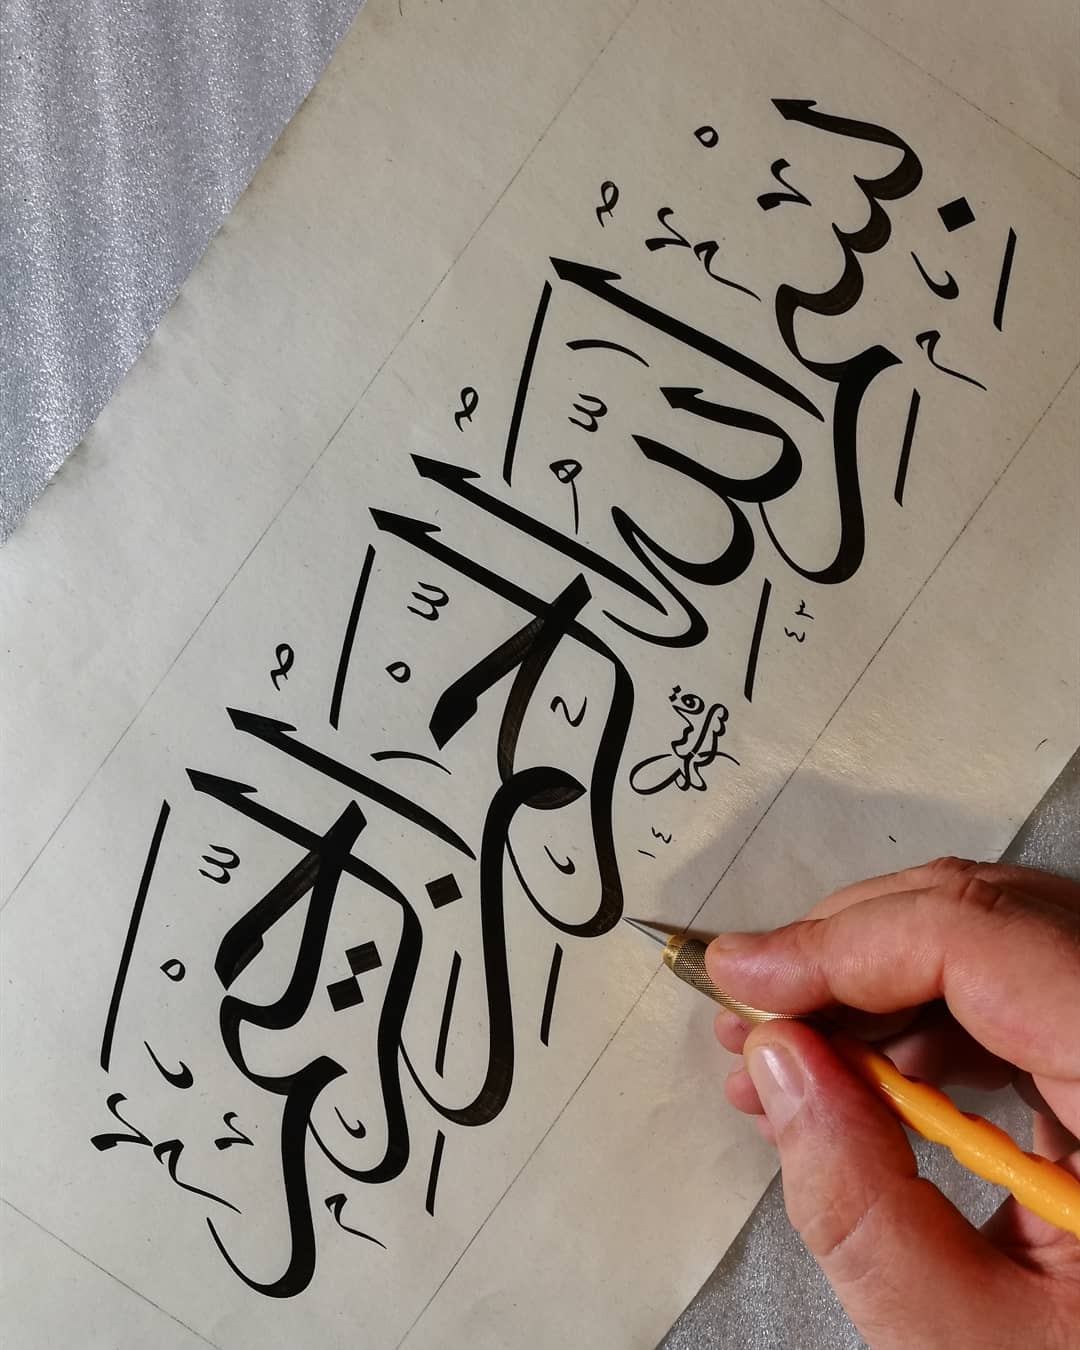 بِسْمِ اللَّهِ الرَّحْمٰنِ الرَّحِيمِ
١٤ ٤٣